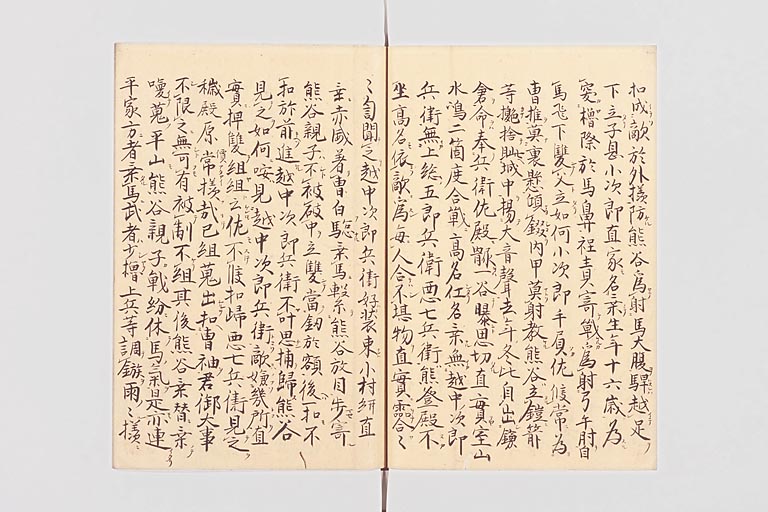 扣成敵於外様防熊谷為射馬大腹驛越足
下立子息小次郎直家名乗生年十六歳為
窄櫓際於馬鼻程責寄戦為射弓手肘自
馬飛下雙父立如何小次郎手負佐候常為
曹推莫裏懸傾錣内甲莫射教熊谷立鎧箭
等抛捨睨城中揚大音聲去年冬比自出鎌
倉命奉兵衛佐殿骸一谷曝思切直實室山
水嶋二箇度合戦高名仁名乗無越中次郎
兵衛無上総五郎兵衛悪七兵衛熊登殿不
坐高名依敵為毎人合不堪物直實霊合々
々訇聞之越中次郎兵衛好装束小村紺直
垂赤威著曹白驄乗馬繋熊谷放目歩寄
熊谷親子不被破中立雙當釼於額後扣不
扣於前進越中次郎兵衛不叶思捕歸熊谷
見之如何咹見越中次郎兵衛敵嫌幾所直
實押雙組組云佐不候扣歸悪七兵衛見之
穢殿原常様哉已組蒐出扣曹袖君御大事
不限之無可有被制不組其後熊谷乗替乗
喚蒐平山熊谷親子戦紛休馬氣是亦連
平家方者乗馬武者少櫓上兵等調鏃雨々様